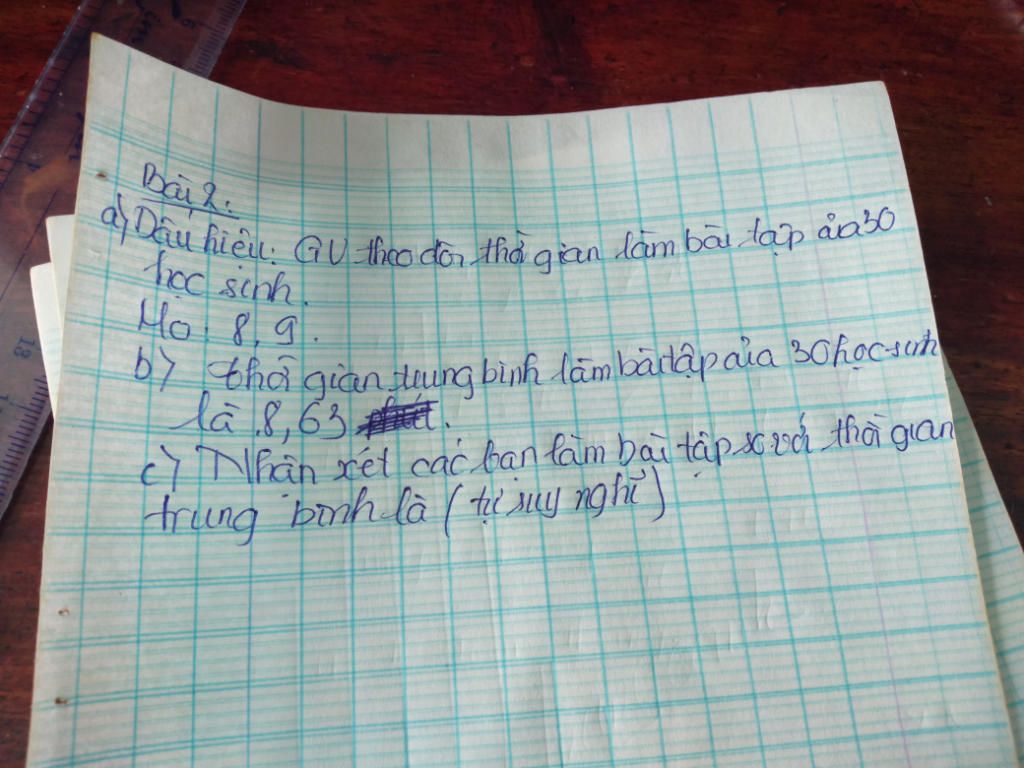 Bài 2:
a) Dấu hiệu: GV theo dõi thời gian làm bài tập của 30
học sinh.
Mo: 8, 9.
b) thời gian trung bình làm bài tập của 30 học sinh
là 8,63
c) Nhận xét các bạn làm bài tập so với thời gian
trung bình là (tự suy nghĩ)